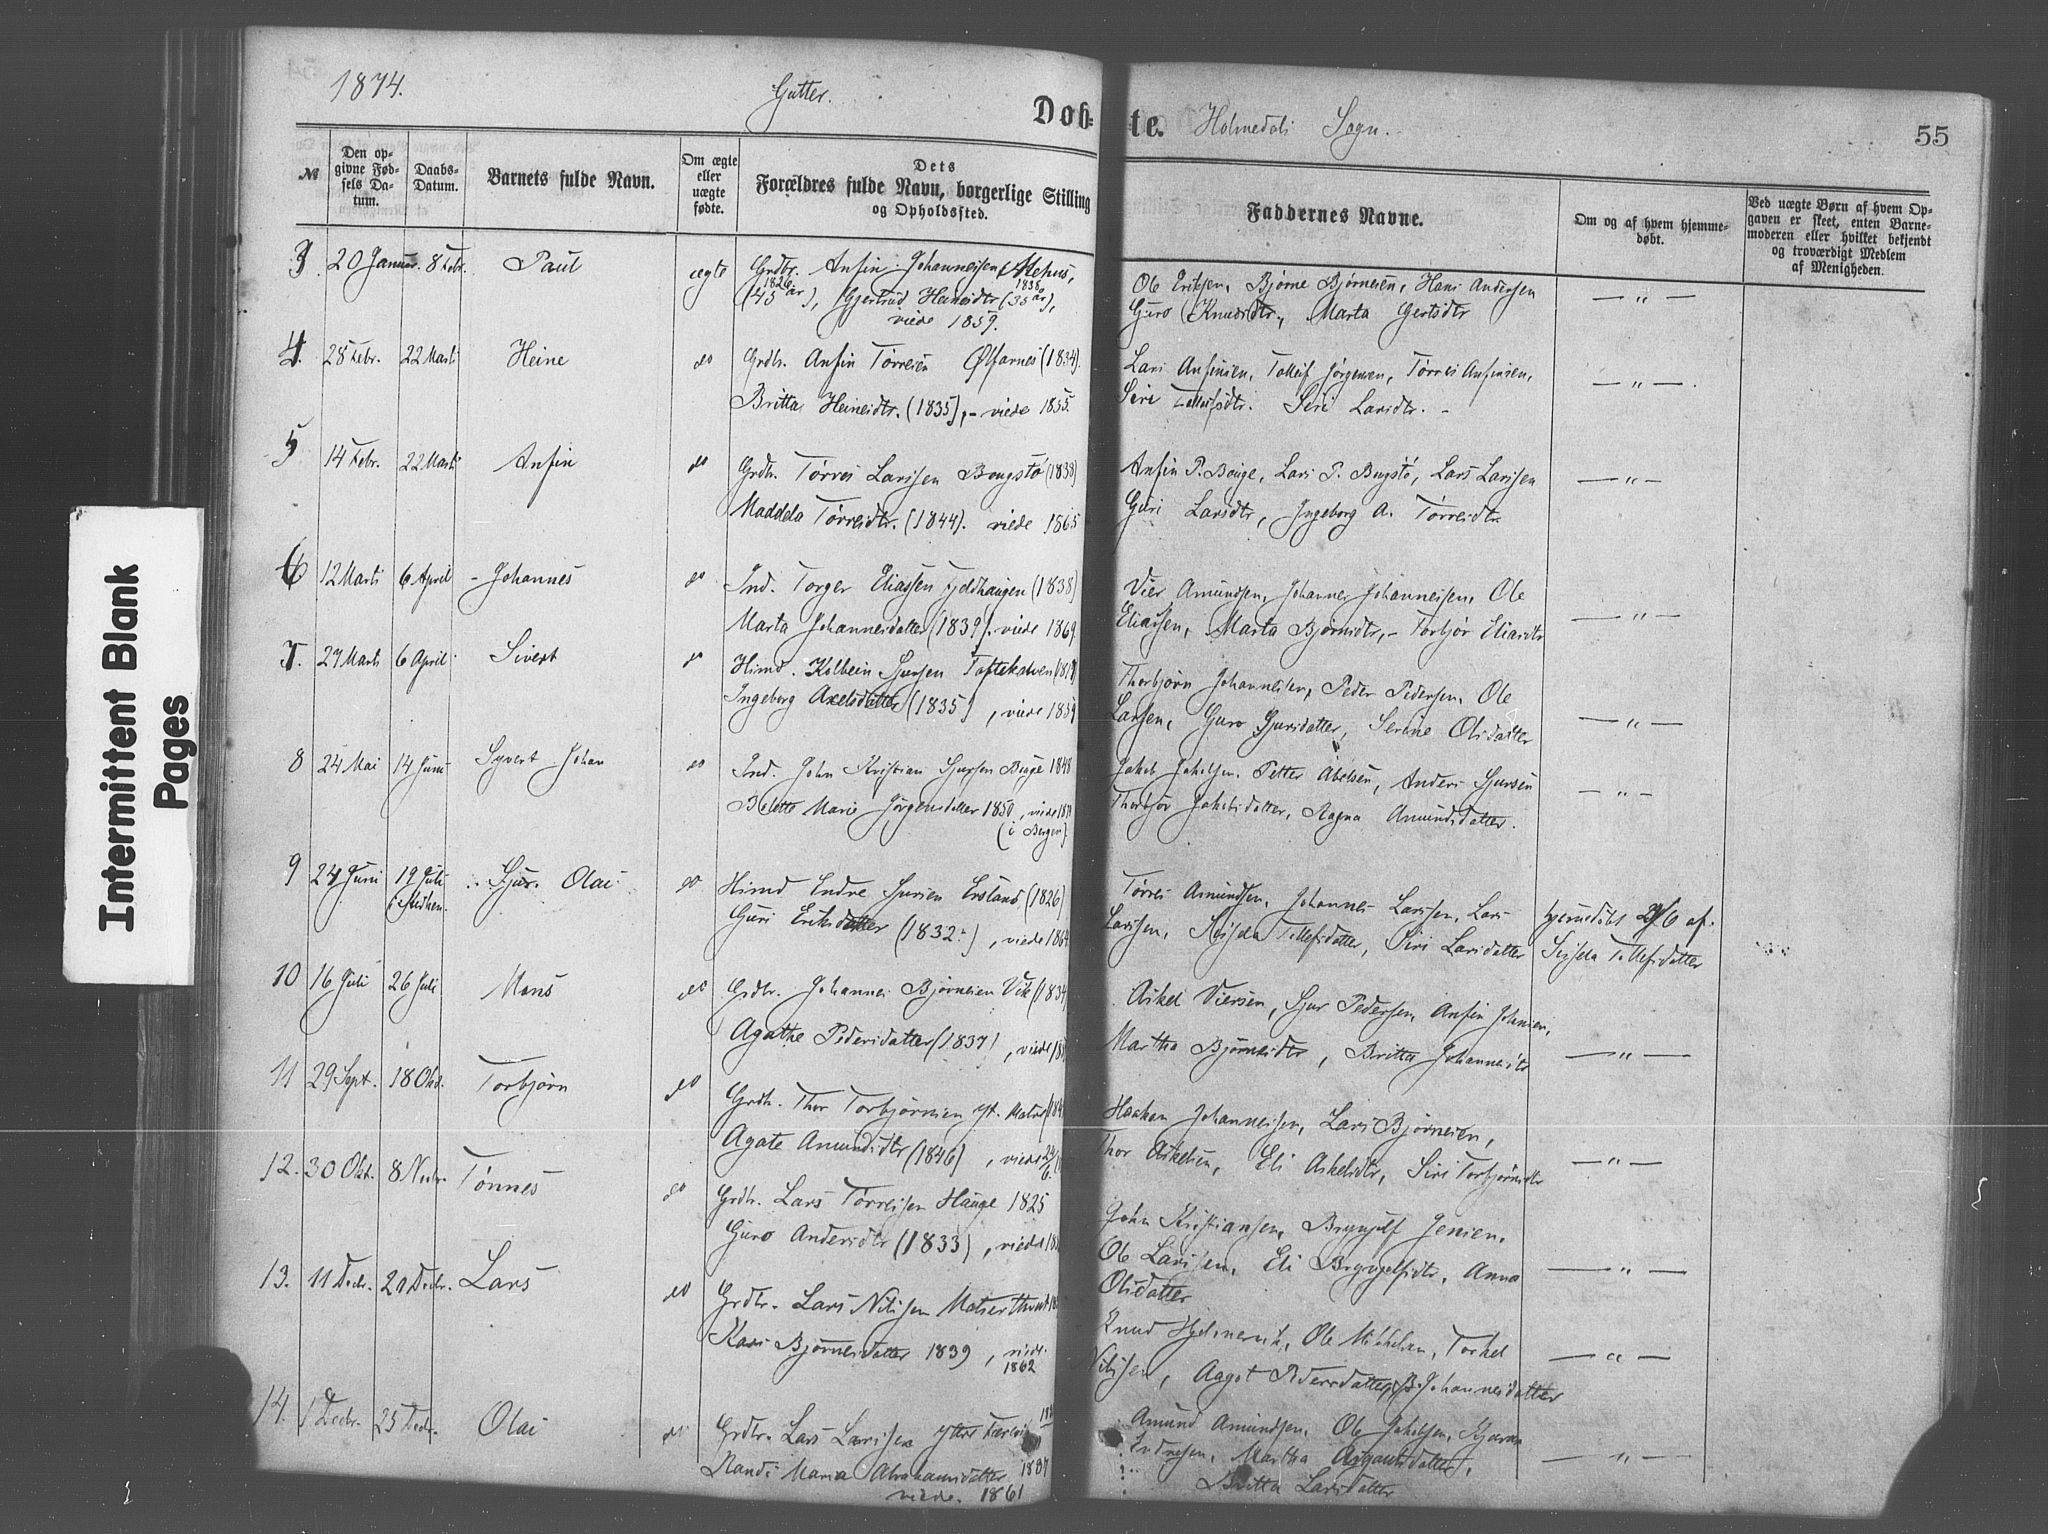 1874.
Gutter.
Døb-
te. Holmedals Sogn.
55
Intermittent Blank
Pages
№
Den op-
givne Fød-
sels Da-
tum.
Daabs-
Datum.
Barnets fulde Navn.
Om ægte
eller
uægte
fødte.
Dets
Forældres fulde Navn, borgerlige Stilling
og Opholdssted.
Faddernes Navne.
Om og af hvem hjemme-
døbt.
Ved uægte Børn af hvem Op-
gaven er skeet, enten Barne-
moderen eller hvilket bekjendt
og troværdigt Medlem
af Menigheden.
3. 20 Januar. 8 Febr. Paul ægte Grdbr. Anfin Johannessen Mehus,
1826 1838
(45 år), Gjertrud Heinesdtr (35 år),
viede 1859.
Ole Eriksen, Bjørne Bjørnesen, Hans Andersen — " —
Guro Knudsdtr., Marta Gertsdtr
4. 28 Febr. 22 Marts Heine do Grdbr. Anfin Tørresen Ølfarnes (1834).
Britta Heinesdtr. (1835), - viede 1855.
Lars Anfinsen, Tolleif Jørgensen, Tørres Anfinsen, — " —
Siri Tolleifsdtr. Siri Larsdtr. -
5 14 Febr. 22 Marts Anfin do Grdbr. Tørres Larssen Bougstø (1838)
Maddela Tørresdtr. (1844). viede 1865
Anfin P. Bouge, Lars P. Bugstø, Lars Larssen — " —
Guri Larsdtr, Ingeborg A. Tørresdtr
6 12 Marts 6 April - Johannes do Ind. Torger Eliassen Fjeldhaugen (1838)
Marta Johannesdatter (1839). viede 1869
Vier Amundsen, Johannes Johannessen, Ole — " —
Eliassen, Marta Bjørnsdtr, - Torbjør Eliasdtr
7. 27 Marts 6 April Sivert do Himd. Kolbein Sjursen
Ingeborg Axelsdatter (1835), viede 1859
Thorbjørn Johannessen, Peder Pedersen, Ole
Larsen, Guro Sjursdatter, Serine Olsdatter — " —
8 24 Mai 14 Juni Syvert Johan do Ind. John Kristian Sjursen Bouge 1848
Marie Jørgensdatter 1850, viede
(i Bergen)
Jakob Jakobsen, Petter Abelsen, Anders Sjursen — " —
Thorbjør Jakobsdatter, Ragna Amundsdatter.
9 24 Juni 19 Juli Sjur Olai do Himd Endre Sjursen Ersland (1826)
Guri Eriksdatter (1832), viede 1864
Tørres Amundsen, Johannes Larssen, Lars hjemmedøbt af
Larssen, Tollefsdatter, Siri Larsdatter Tollefsdatter
10 16 Juli 26 Juli Mons do Grdbr. Johannes Bjørnesen Vik (1834)
Agathe Pedersdatter (1837), viede
Askel Viersen, Sjur Pedersen, Anfin Johnsen,
Martha Bjørnesdtr, Britta Johannesdtr — " —
11 29 Sept. 18 Okt. Torbjørn do Grdbr. Thor Torbjørnsen yt. Matre
Agate Amundsdtr (1846), viede
Haakon Johannessen, Lars Bjørnesen,
Thor Askelsen, Eli Askelsdtr, Siri Torbjørnsdtr — " —
12. 30 Okt. 8 Novbr. Tønnes do Grdbr. Lars Tørressen Hauge 1825
Guro Andersdtr (1833), viede
John Kristiansen, Brynjulf Jensen,
Ole Larssen, Eli Brynjulfsdtr, Anna — " —
Olsdatter
13. 11 Decbr. 20 Decbr. Lars do Grdbr. Lars Nilssen
Kari Bjørnesdatter 1839, viede
1862
Knud Ole Mikkelsen, Torkel — " —
Nilssen, Aagot Pedersdatter, B. Johannesdatter
14. 1 Decbr. 25 Decbr. Olai do Grdbr. Lars Larssen
Randi Maria Abrahamsdatter 1837
viede. 1861
Amund Amundsen, Ole Jakobsen,
Endresen, Martha — " —
Britta Larsdatter